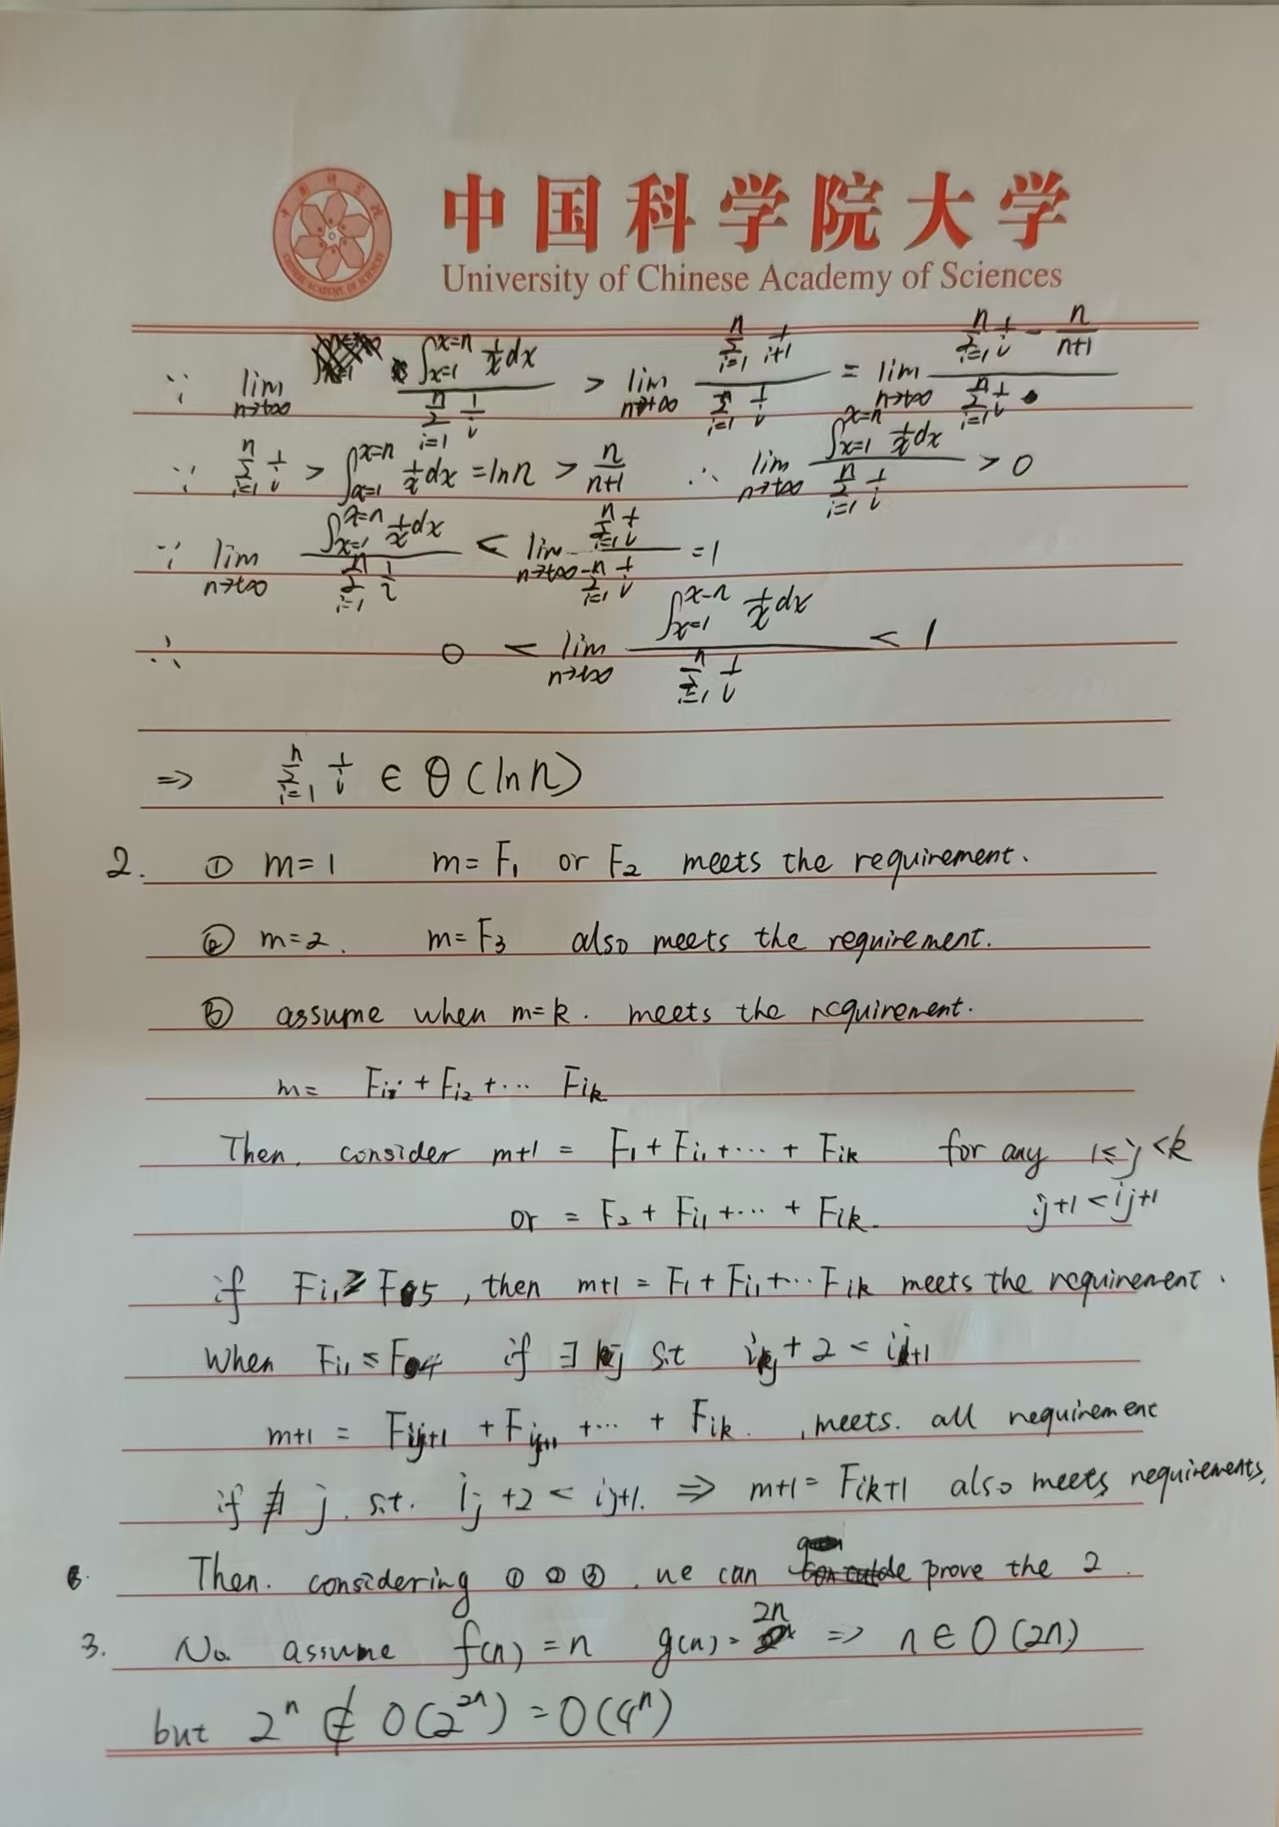 中国科学院大学
University of Chinese Academy of Sciences
∵ lim n→+∞ ∫_{x=1}^{x=n} 1/x dx / ∑_{i=1}^{n} 1/i > lim n→+∞ ∑_{i=1}^{n} 1/(i+1) / ∑_{i=1}^{n} 1/i = lim n→+∞ (∑_{i=1}^{n} 1/i - n/(n+1)) / ∑_{i=1}^{n} 1/i
∵ ∑_{i=1}^{n} 1/i > ∫_{x=1}^{x=n} 1/x dx = ln n > n/(n+1) ∴ lim n→+∞ ∫_{x=1}^{x=n} 1/x dx / ∑_{i=1}^{n} 1/i > 0
∵ lim n→+∞ ∫_{x=1}^{x=n} 1/x dx / ∑_{i=1}^{n} 1/i < lim n→+∞ ∑_{i=1}^{n} 1/i / ∑_{i=1}^{n} 1/i = 1
∴ 0 < lim n→+∞ ∫_{x=1}^{x=n} 1/x dx / ∑_{i=1}^{n} 1/i < 1
⇒ ∑_{i=1}^{n} 1/i ∈ Θ(ln n)
2. ① m=1 m=F₁ or F₂ meets the requirement.
② m=2. m=F₃ also meets the requirement.
③ assume when m=k. meets the requirement.
m= F_{i1} + F_{i2} + ... F_{ik}
Then, consider m+1 = F₁ + F_{i1} + ... + F_{ik} for any 1≤j<k
or = F₂ + F_{i1} + ... + F_{ik}. i_j+1 < i_{j+1}
if F_{i1} ≥ F₅, then m+1 = F₁ + F_{i1} + ... F_{ik} meets the requirement.
when F_{i1} ≤ F₄ if ∃ j s.t i_j + 2 < i_{j+1}
m+1 = F_{ij+1} + F_{ij+1} + ... + F_{ik}. meets. all requirement
if ∄ j. s.t. i_j +2 < i_{j+1}. ⇒ m+1 = F_{ik+1} also meets requirements.
Then. considering ① ② ③. we can prove the 2.
3. No. assume f(n) = n g(n) = 2n ⇒ n ∈ O(2n)
but 2^n ∉ O(2^{2n}) = O(4^n)